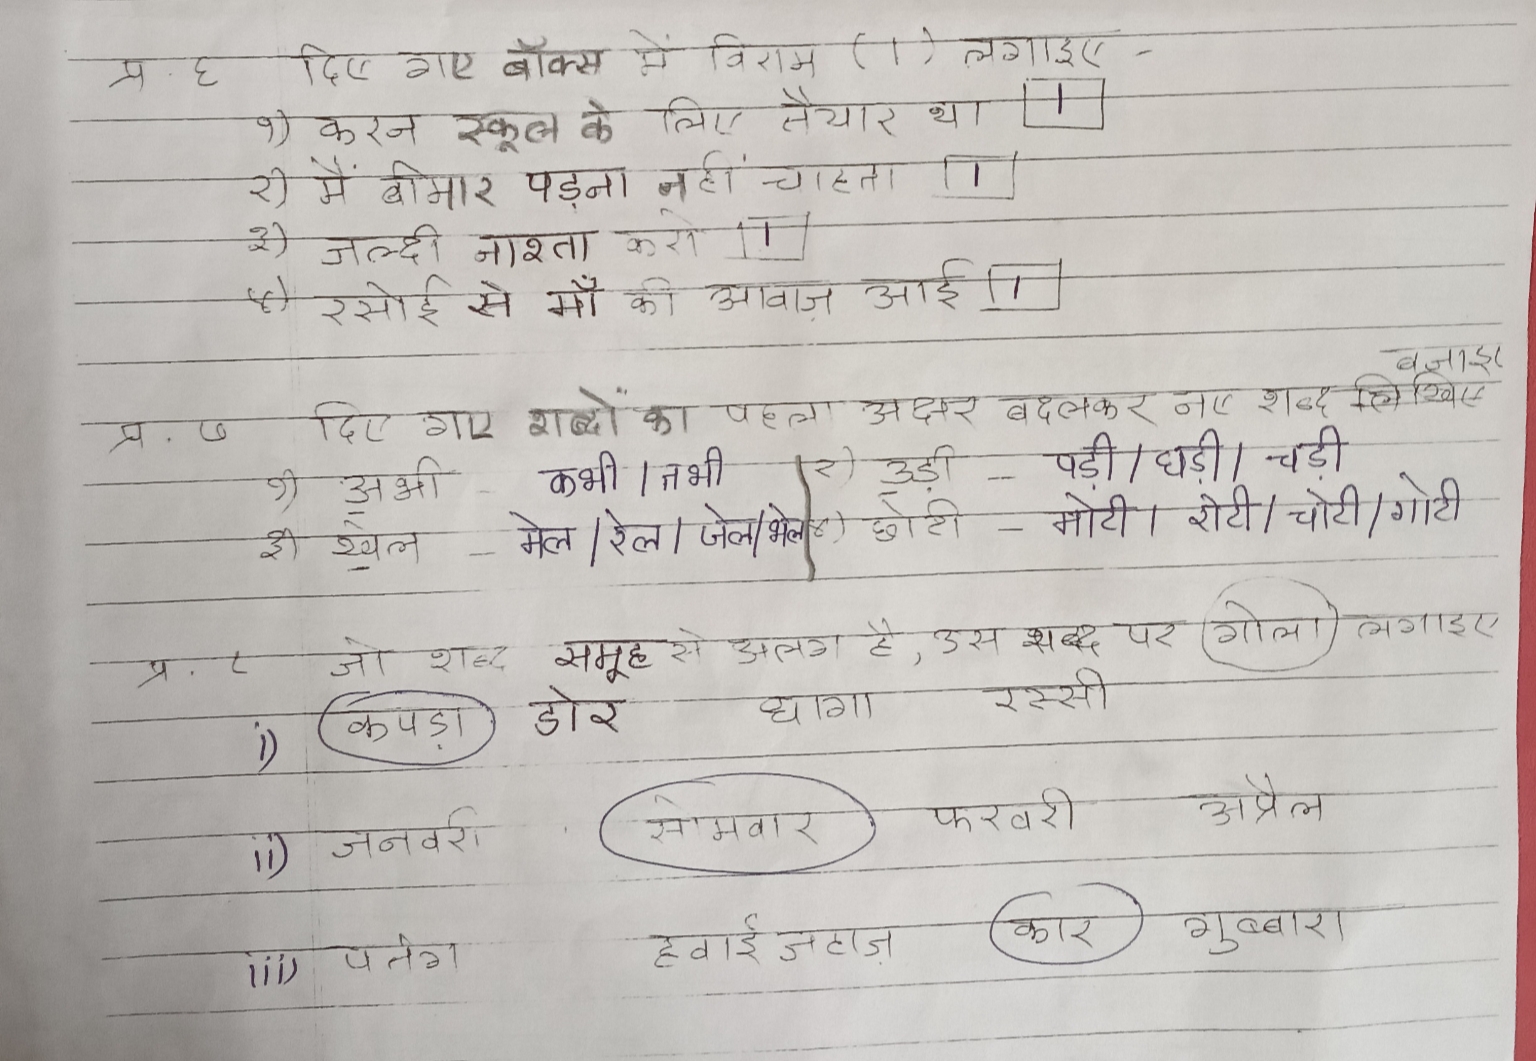 प्र. ६ दिए गए बॉक्स में विराम (।) लगाइए -
१) करन स्कूल के लिए तैयार था ।
२) मैं बीमार पड़ना नहीं चाहता ।
३) जल्दी नाश्ता करो ।
४) रसोई से माँ की आवाज़ आई ।
बनाइए
प्र. ७ दिए गए शब्दों का पहला अक्षर बदलकर नए शब्द लिखिए
१) अभी - कभी / तभी २) उड़ी - पड़ी / घड़ी / चड़ी
३) खेल - मेल / रेल / जेल / भेल ४) छोटी - मोटी / रोटी / चोटी / गोटी
प्र. ८ जो शब्द समूह से अलग है, उस शब्द पर गोला लगाइए
i) कपड़ा डोर धागा रस्सी
ii) जनवरी सोमवार फरवरी अप्रैल
iii) पतंग हवाई जहाज़ कार गुब्बारा